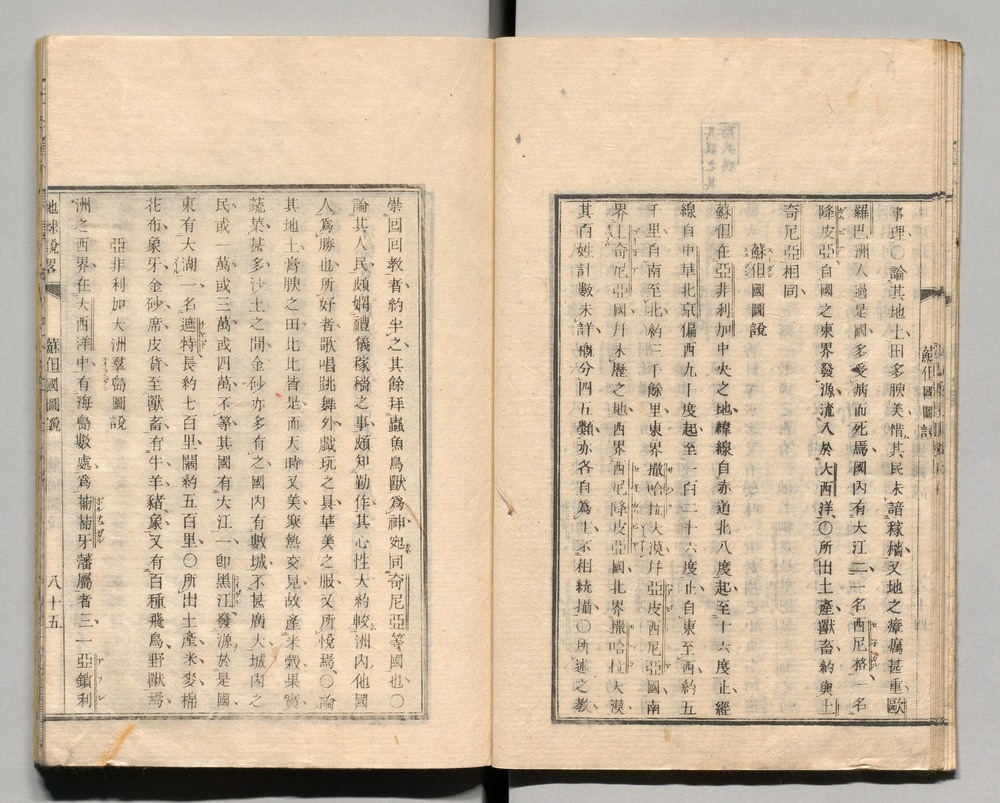 事理〇論其地土田多腴美惜其民未諳稼穡又地之瘴癘甚重歐
羅巴洲人過是國多受病而死焉國內有大江二一名西尼格一名
降皮亞自國之東界發源流入於大西洋〇所出土產獸畜約與上
奇尼亞相同
蘇但國圖說
蘇但在亞非利加中央之地緯線自赤道北八度起至十六度止經
線自中華北京偏西九十度起至一百二十六度止自東至西約五
千里自南至北約三千餘里東界撒哈拉大漠幷亞皮西尼亞國南
界上奇尼亞國幷未歷之地西界西尼降皮亞國北界撒哈拉大漠
其百姓計數未詳槪分四五類亦各自爲主不相統攝〇所述之敎
蘇但國圖說
崇回回教者約半之其餘拜蟲魚鳥獸爲神宛同奇尼亞等國也〇
論其人民頗嫻禮儀稼穡之事頗知勤作其心性大約較洲內他國
人爲勝也所好者歌唱跳舞外戲玩之具華美之服又所悅焉〇論
其地土膏腴之田比比皆是而天時又美寒熱交見故產米穀果實
蔬菜甚多沙土之間金砂亦多有之國內有數城不甚廣大城內之
民或一萬或三萬或四萬不等其國有大江一卽黑江發源於是國
東有大湖一名遮特長約七百里闊約五百里〇所出土產米麥棉
花布象牙金砂席皮貨至獸畜有牛羊豬象又有百種飛鳥野獸焉
亞非利加大洲羣島圖說
洲之西界在大西洋中有海島數處爲葡萄牙藩屬者三一亞鎖利
地球說畧
蘇但國圖說
八十五